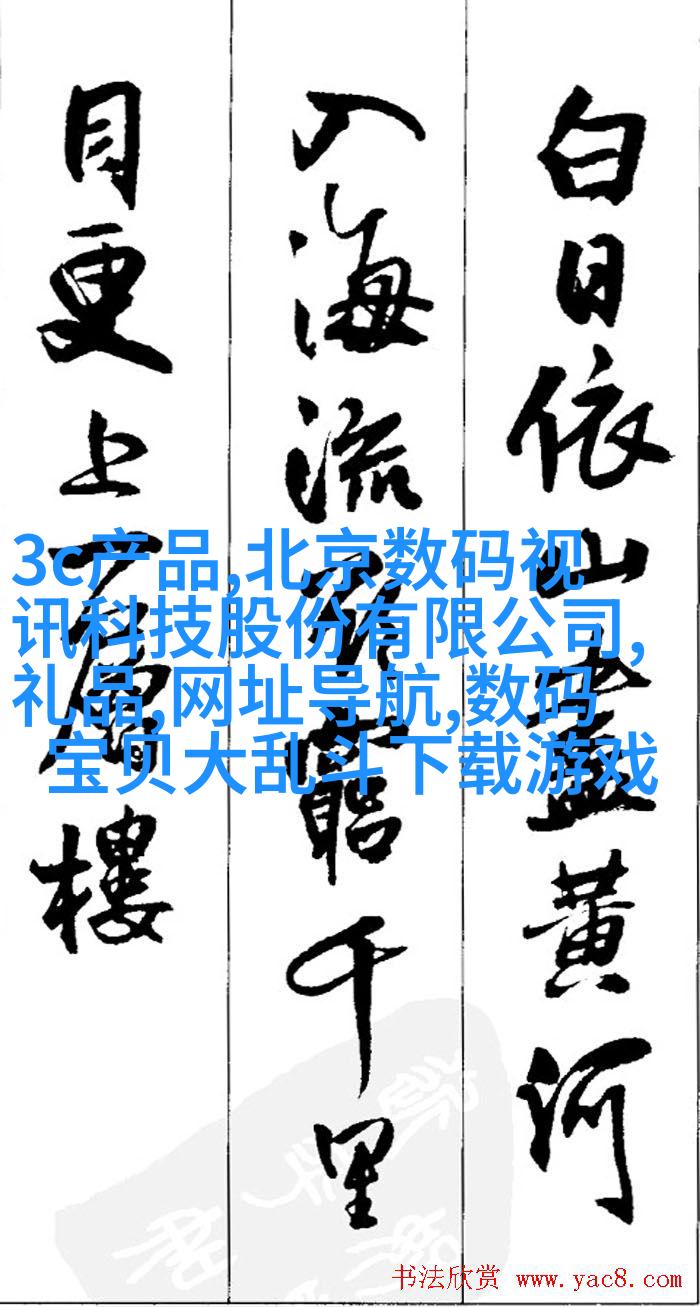 白日依山盡黄河
入海流欲窮千里
目更上一層樓
3c产品,北京数码视
讯科技股份有限公司,
礼品,网址导航,数码
宝贝大乱斗下载游戏
书法欣赏 www.yac8.com